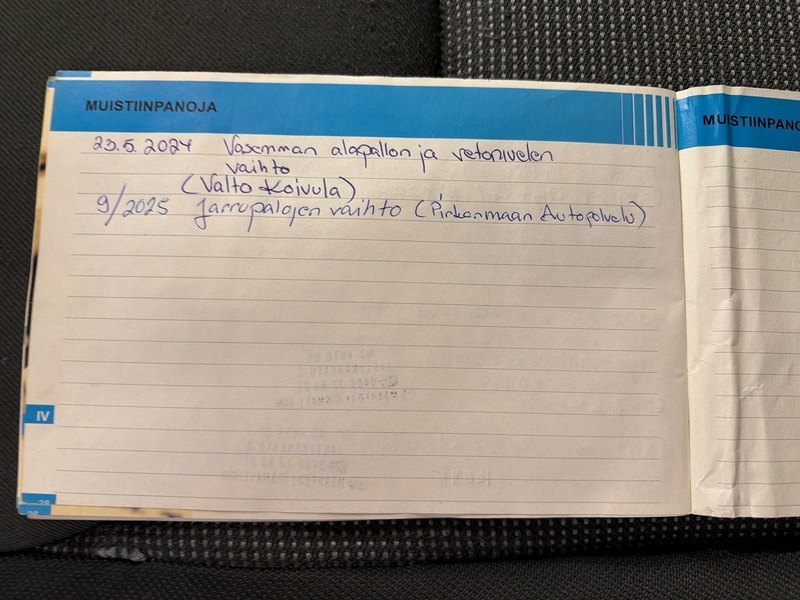 MUISTIINPANOJA
MUISTIINPANO
23.5.2024 Vasemman alapallon ja vetonivelen
vaihto
(Valto Koivula)
9/2025 Jarrupalojen vaihto (Pirkanmaan Autopalvelu)
IV
28